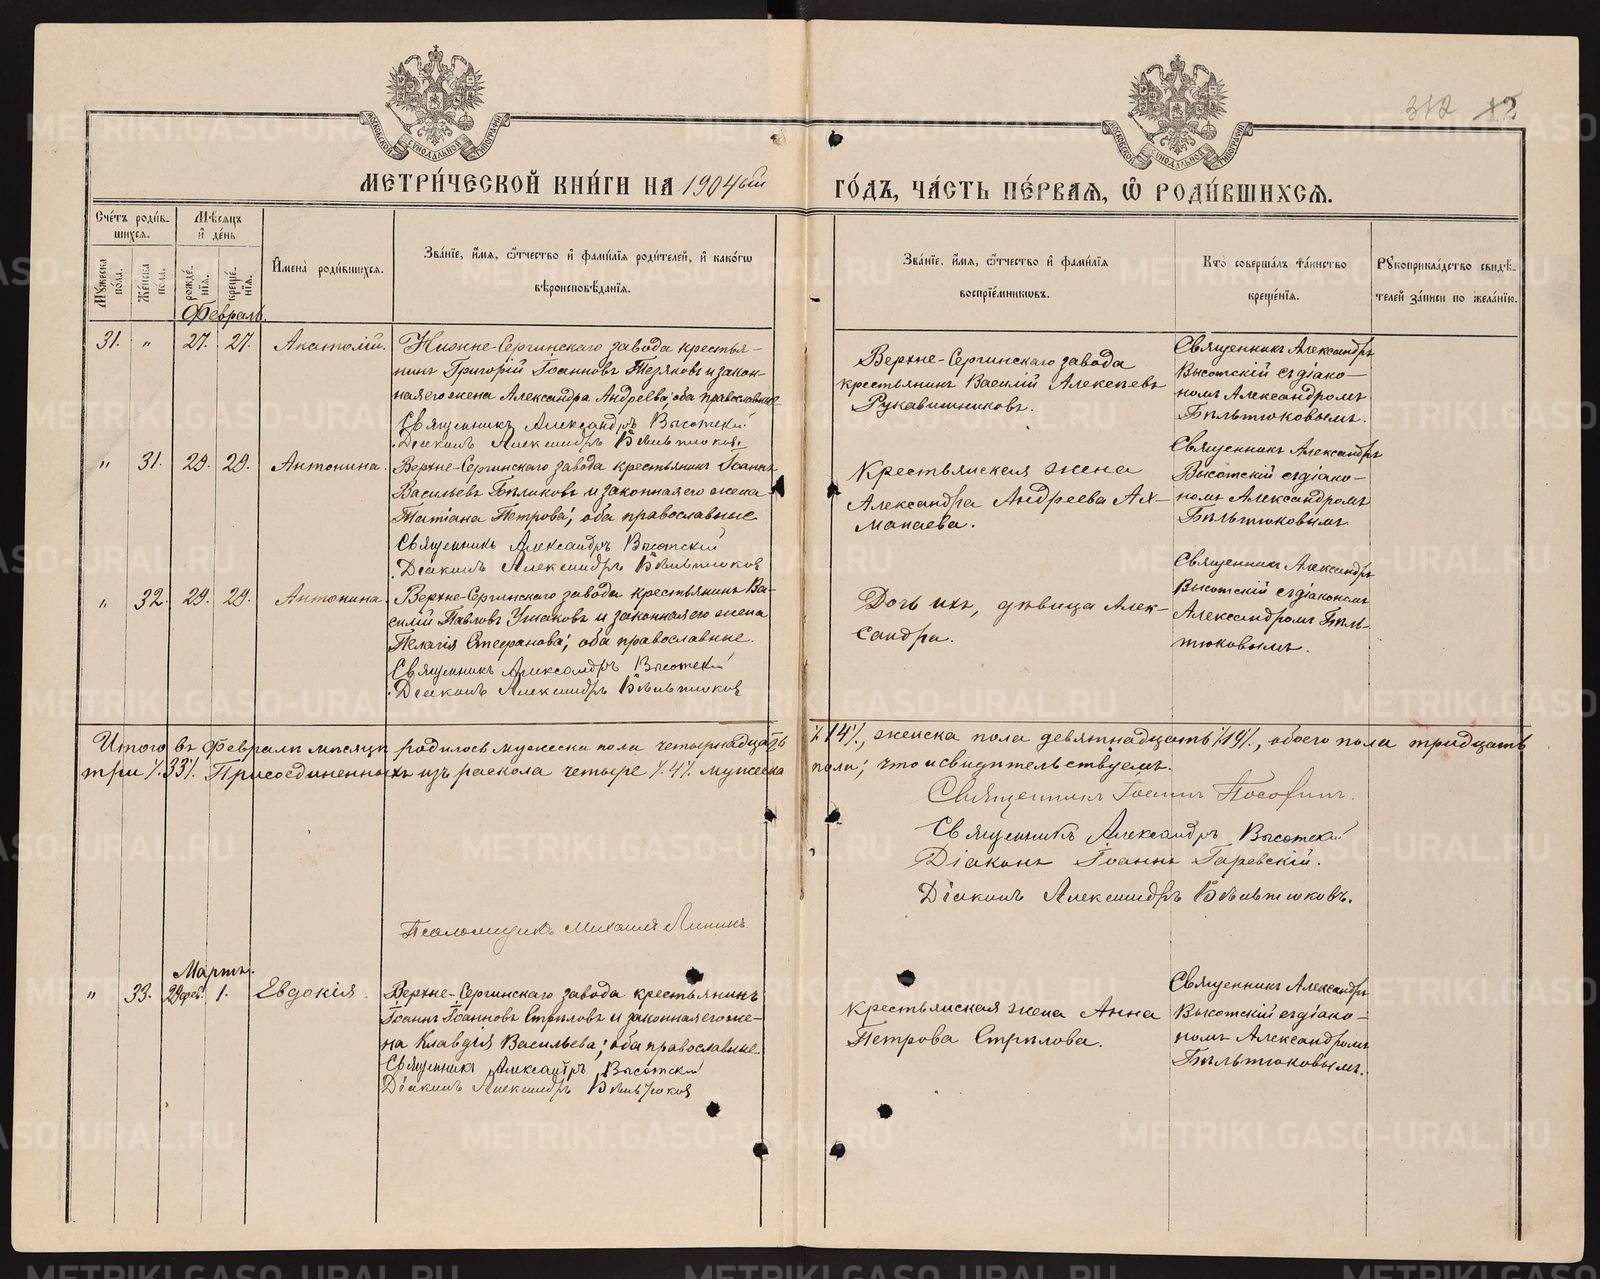 312 12
МОСКОВСКОЙ СѴНОДАЛЬНОЙ ТИПОГРАФІИ
МОСКОВСКОЙ СѴНОДАЛЬНОЙ ТИПОГРАФІИ
МЕТРИ́ЧЕСКОЙ КНИ́ГИ НА 1904ый ГО́ДЪ, ЧА́СТЬ ПЕ́РВАЯ, Ѽ РОДИ́ВШИХСѦ.
Сче́тъ роди́в-
шихся.
Мѣ́сяцъ
и҆ де́нь
Му́жеска
по́ла.
Же́нска
по́ла.
рожде́-
нїя.
креще́-
нїя.
И҆мена̀ роди́вшихся.
Зва́нїе, и҆́мя, ѻ҆́тчество и҆ фамилїя роди́телей, и҆ како́гѡ
вѣроисповѣ́данїя.
Зва́нїе, и҆́мя, ѻ҆́тчество и҆ фами́лїя
воспрїе́мниковъ.
Кто̀ соверша́лъ та́инство
креще́нїя.
Рукоприкла́дство свидѣ́-
телей за́писи по жела́нїю.
Февраль.
31. „ 27. 27. Анатолій.
Нижне-Сергинскаго завода крестья-
нинъ Григорій Іоанновъ Тезяковъ и закон-
ная его жена Александра Андреева; оба православные.
Священникъ Александръ Высотскій
Діаконъ Александръ Бѣльтюковъ
Верхне-Сергинскаго завода
крестьянинъ Василій Алексѣевъ
Рукавишниковъ.
Священникъ Александръ
Высотскій съ діако-
номъ Александромъ
Бѣльтюковымъ.
„ 31. 29. 29. Антонина.
Верхне-Сергинскаго завода крестьянинъ Іоаннъ
Васильевъ Бѣликовъ и законная его жена
Татіана Петрова; оба православные
Священникъ Александръ Высотскій
Діаконъ Александръ Бѣльтюковъ
Крестьянская жена
Александра Андреева Ах-
манаева.
Священникъ Александръ
Высотскій съ діако-
номъ Александромъ
Бѣльтюковымъ
„ 32. 29. 29. Антонина.
Верхне-Сергинскаго завода крестьянинъ Ва-
силій Павловъ Ушаковъ и законная его жена
Пелагія Стефанова; оба православные.
Священникъ Александръ Высотскій
Діаконъ Александръ Бѣльтюковъ
Дочь ихъ, дѣвица Алек-
сандра.
Священникъ Александръ
Высотскій съ діакономъ
Александромъ Бѣль-
тюковымъ.
Итого въ Февралѣ мѣсяцѣ родилось мужеска пола четырнадцать ⁒14⁒, женска пола девятнадцать ⁒19⁒, обоего пола тридцать
три ⁒33⁒. Присоединенныхъ изъ раскола четыре ⁒4⁒ мужеска пола; что и свидѣтельствуемъ.
Священникъ Іоаннъ
Священникъ Александръ Высотскій
Діаконъ Іоаннъ Гаревскій.
Діаконъ Александръ Бѣльтюковъ.
Псаломщикъ Михаилъ
Мартъ.
„ 33. 29 фев. 1. Евдокія.
Верхне-Сергинскаго завода крестьянинъ
Іоаннъ Іоанновъ Стрѣловъ и законная его же-
на Клавдія Васильева; оба православные.
Священникъ Александръ Высотскій
Діаконъ Александръ Бѣльтюковъ
Крестьянская жена Анна
Петрова Стрѣлова.
Священникъ Александръ
Высотскій съ діако-
номъ Александромъ
Бѣльтюковымъ.
METRIKI.GASO-URAL.RU